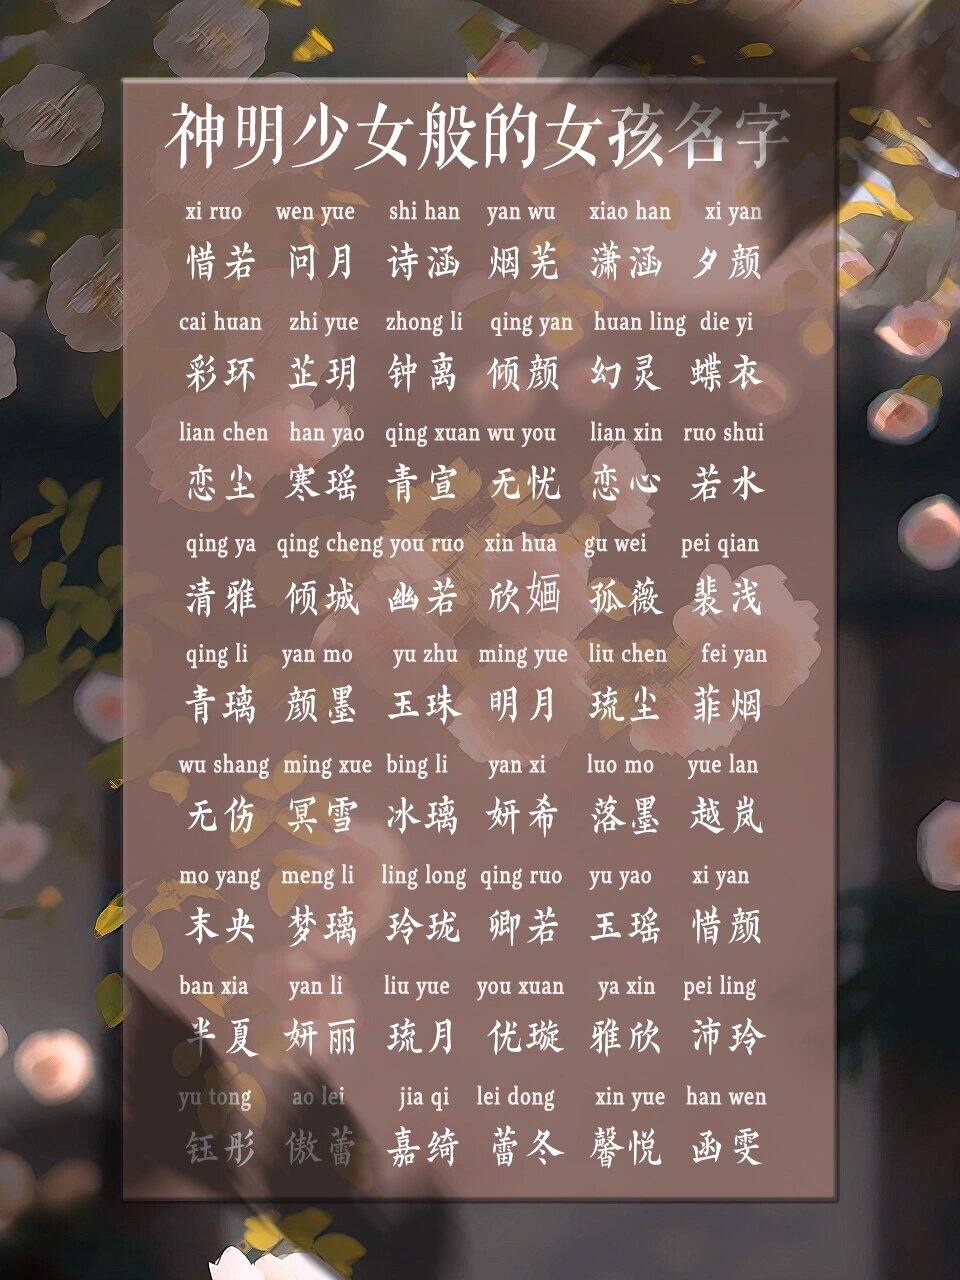 神明少女般的女孩名字
xi ruo wen yue shi han yan wu xiao han xi yan
惜若 问月 诗涵 烟芜 潇涵 夕颜
cai huan zhi yue zhong li qing yan huan ling die yi
彩环 芷玥 钟离 倾颜 幻灵 蝶衣
lian chen han yao qing xuan wu you lian xin ruo shui
恋尘 寒瑶 青宣 无忧 恋心 若水
qing ya qing cheng you ruo xin hua gu wei pei qian
清雅 倾城 幽若 欣婳 孤薇 裴浅
qing li yan mo yu zhu ming yue liu chen fei yan
青璃 颜墨 玉珠 明月 琉尘 菲烟
wu shang ming xue bing li yan xi luo mo yue lan
无伤 冥雪 冰璃 妍希 落墨 越岚
mo yang meng li ling long qing ruo yu yao xi yan
末央 梦璃 玲珑 卿若 玉瑶 惜颜
ban xia yan li liu yue you xuan ya xin pei ling
半夏 妍丽 琉月 优璇 雅欣 沛玲
yu tong ao lei jia qi lei dong xin yue han wen
钰彤 傲蕾 嘉绮 蕾冬 馨悦 函雯